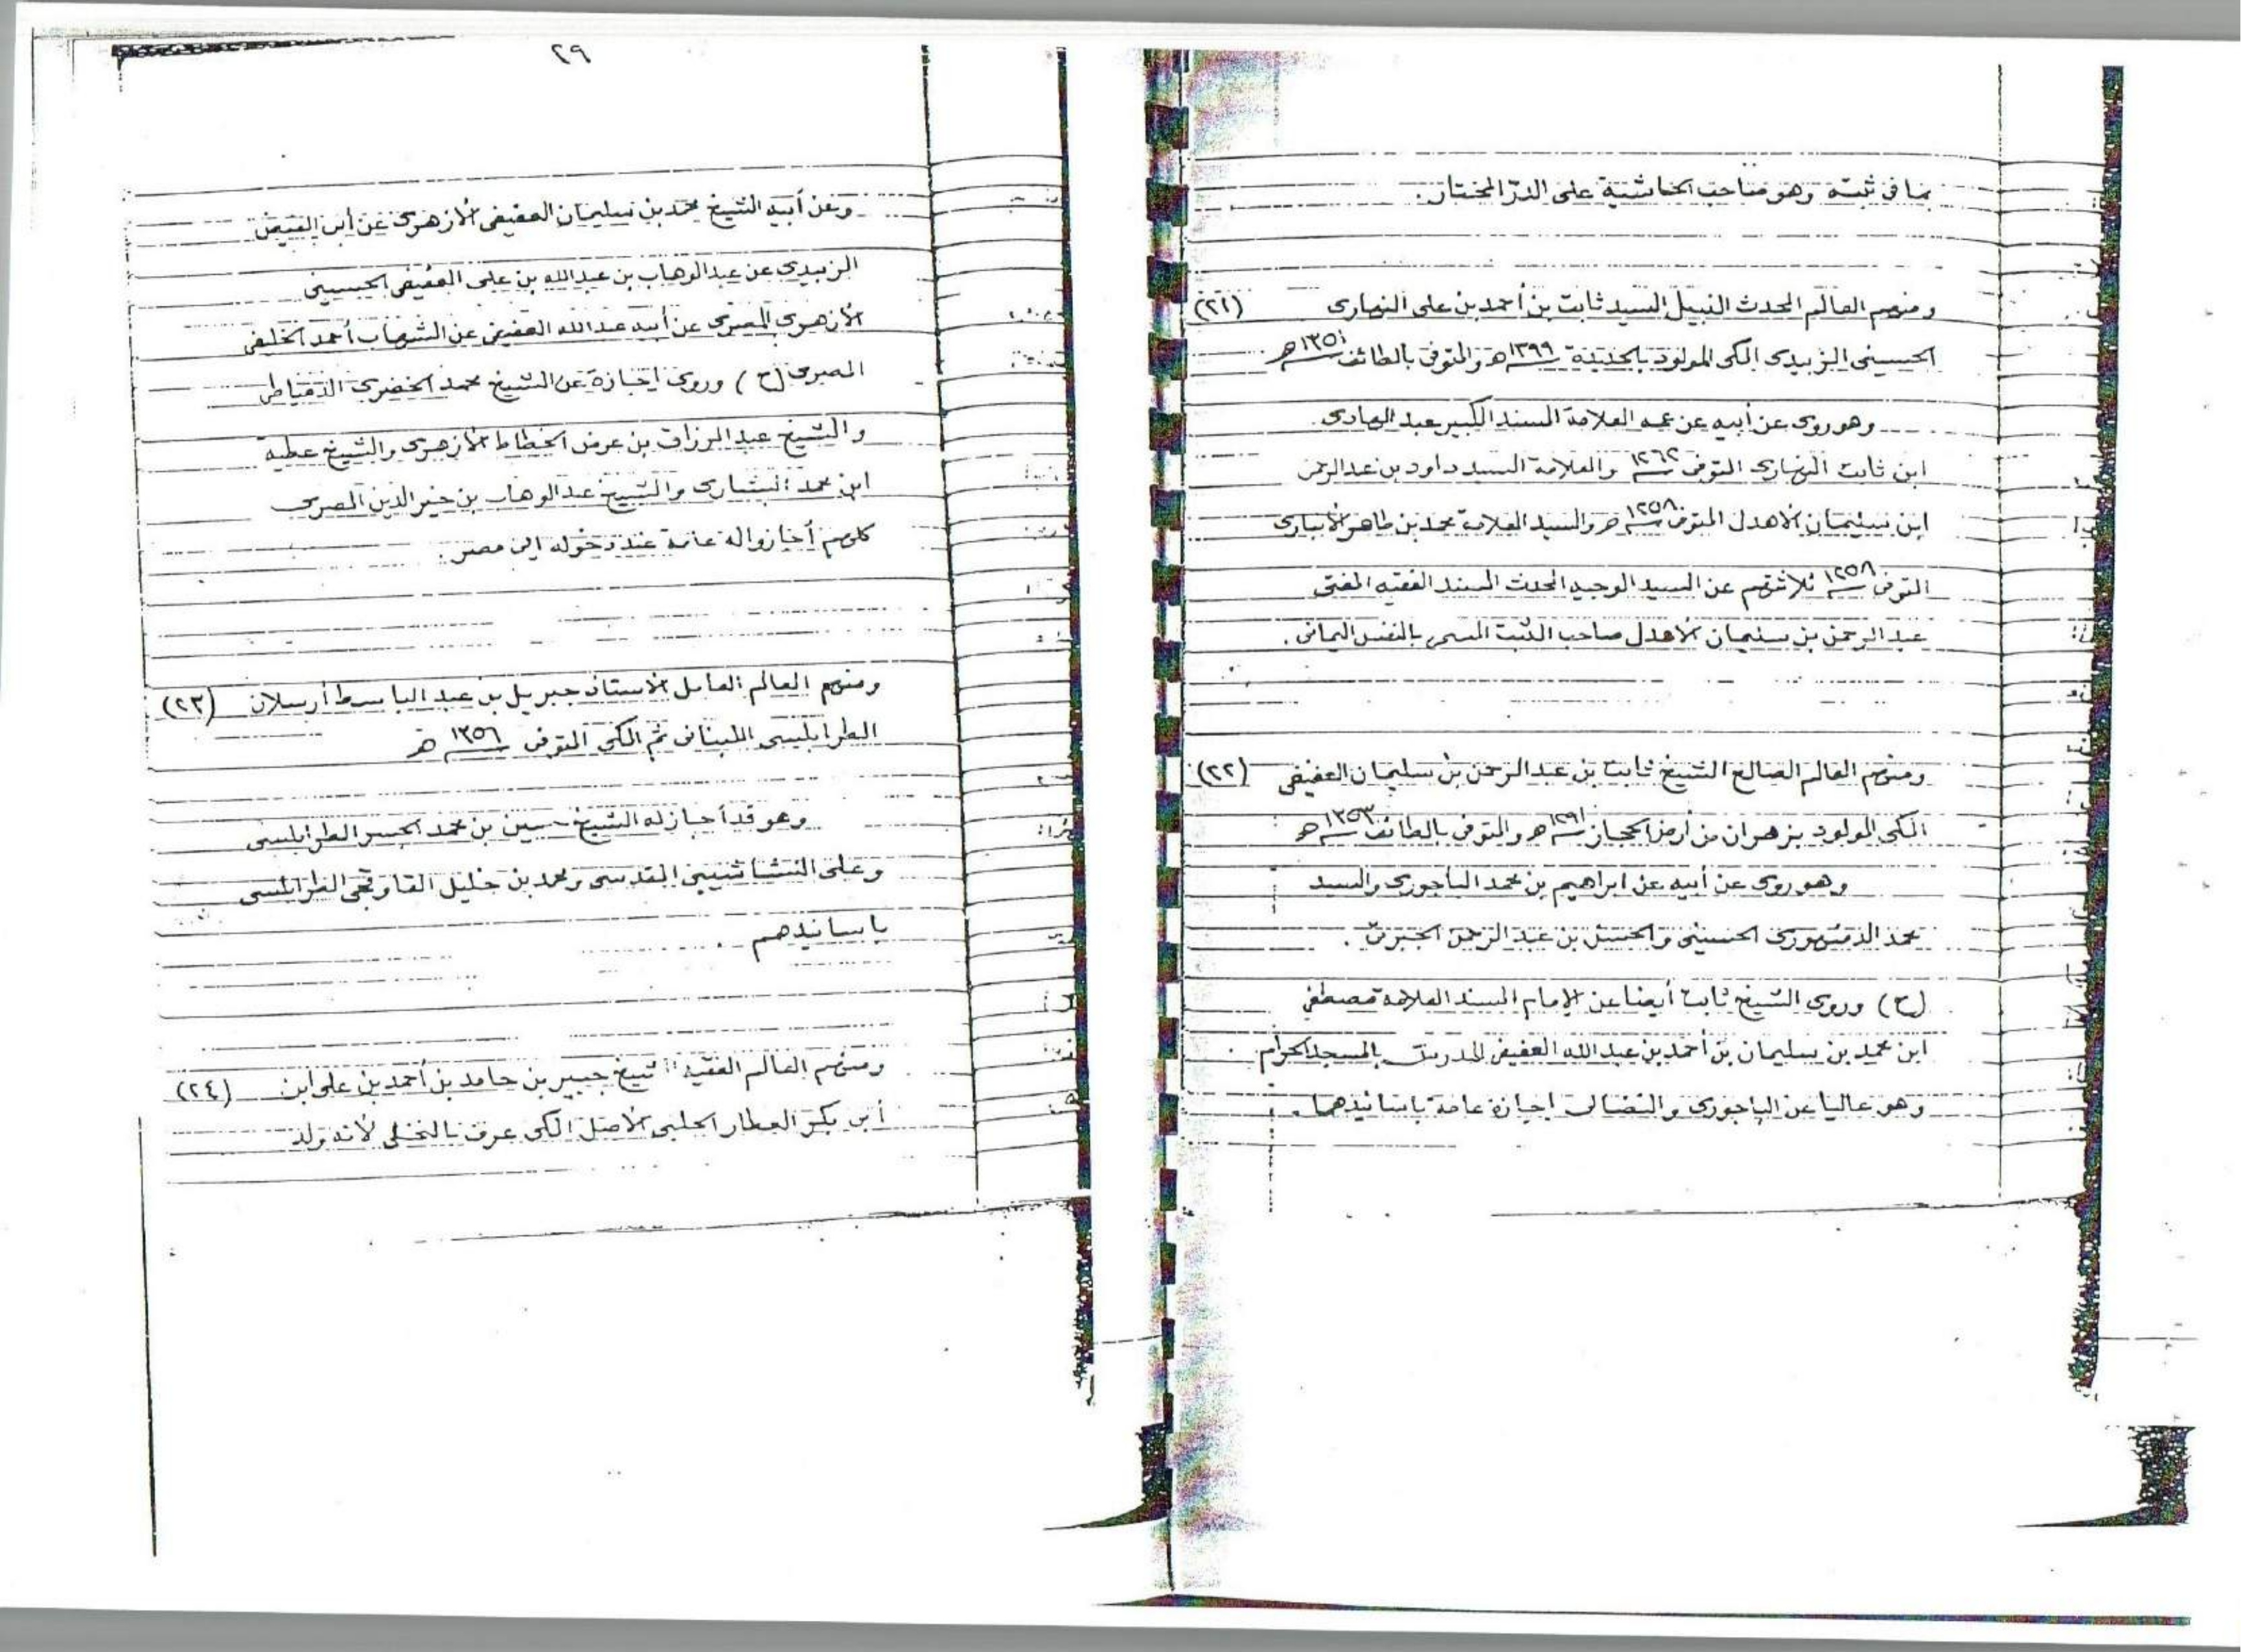 بما في ثبته وهو صاحب الحاشية على الدر المختار.
ومنهم العالم المحدث النبيل السيد ثابت بن أحمد بن على النهارى (٢١)
الحسينى الزبيدى المكى المولود بالحديدة ١٢٩٩ هـ والمتوفى بالطائف ١٣٥١ هـ
وهو روى عن أبيه عن عمه العلامة المسند الكبير عبد الهادى
ابن ثابت النهارى المتوفى ١٢٦٢ والعلامة السيد داود بن عبد الرحمن
ابن سليمان الأهدل المتوفى ١٢٥٨ هـ والسيد العلامة محمد بن طاهر الأنبارى
المتوفى ١٢٥٨ ثلاثتهم عن السيد الوجيه المحدث المسند الفقيه المفتى
عبد الرحمن بن سليمان الأهدل صاحب الثبت المسمى بالنفس اليمانى .
ومنهم العالم الصالح الشيخ ثابت بن عبد الرحمن بن سليمان العفيفى (٢٢)
المكى المولود بزهران من أرض الحجاز ١٢٩١ هـ والمتوفى بالطائف ١٣٥٣ هـ
وهو روى عن أبيه عن ابراهيم بن محمد الباجورى والسيد
محمد الدمنهورى الحسينى والحسن بن عبد الرحمن الجبرتى .
(ح) وروى الشيخ ثابت أيضا عن الإمام المسند العلامة مصطفى
ابن محمد بن سليمان بن أحمد بن عبد الله العفيفى المدرس بالمسجد الحرام
وهو عاليا عن الباجورى والفضالى اجازة عامة بأسانيدهما .
٢٩
وعن أبيه الشيخ محمد بن سليمان العفيفى الأزهرى عن أبى الفيض
الزبيدى عن عبد الوهاب بن عبد الله بن على العفيفى الحسينى
الأزهرى المصرى عن أبيه عبد الله العفيفى عن الشهاب أحمد الخليفى
المصرى (ح) وروى اجازة عن الشيخ محمد الخضرى الدمياطى
والشيخ عبد الرزاق بن عوض الخطاط الأزهرى والشيخ عطية
ابن محمد البشارى والشيخ عبد الوهاب بن خير الدين المصرى
كلهم أجازوا له عامة عند دخوله إلى مصر .
ومنهم العالم العامل الأستاذ جبريل بن عبد الباسط أرسلان (٢٣)
الطرابلسى اللبنانى ثم المكى المتوفى ١٣٥٦ هـ
وهو قد أجاز له الشيخ حسين بن محمد الجسر الطرابلسى
وعلى النشاشيبى المقدسى ومحمد بن خليل القاوقجى الطرابلسى
بأسانيدهم .
ومنهم العالم الفقيه الشيخ جبير بن حامد بن أحمد بن على ابن (٢٤)
أبى بكر العطار الحلبى الأصل المكى عرف بالنخلى لأنه ولد